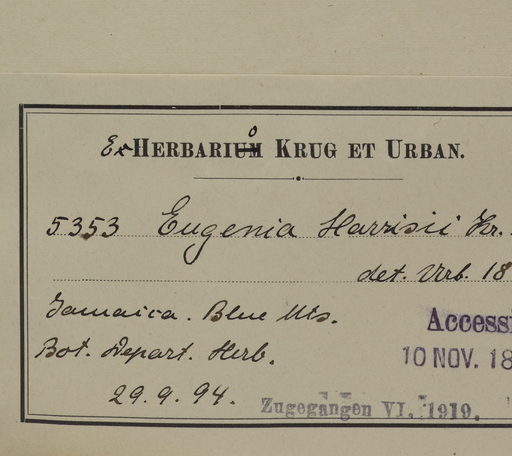 Ex HERBARIO KRUG ET URBAN.
5353 Eugenia Harrisii Kr.
det. Urb. 18
Jamaica. Blue Mts.
Accessi
Bot. Depart. Herb.
10 NOV. 18
29. 9. 94.
Zugegangen VI. 1919.